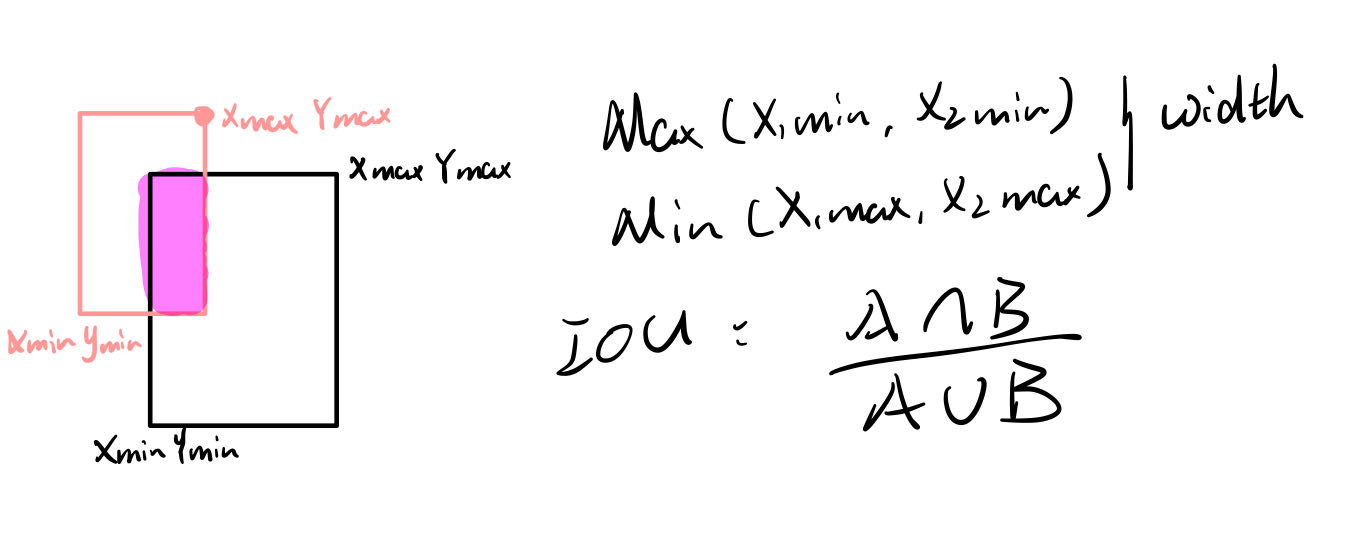 Xmax Ymax
Xmax Ymax
Xmin Ymin
Xmin Ymin
Max (X1min, X2min)
Min (X1max, X2max)
width
IOU : A∩B
A∪B